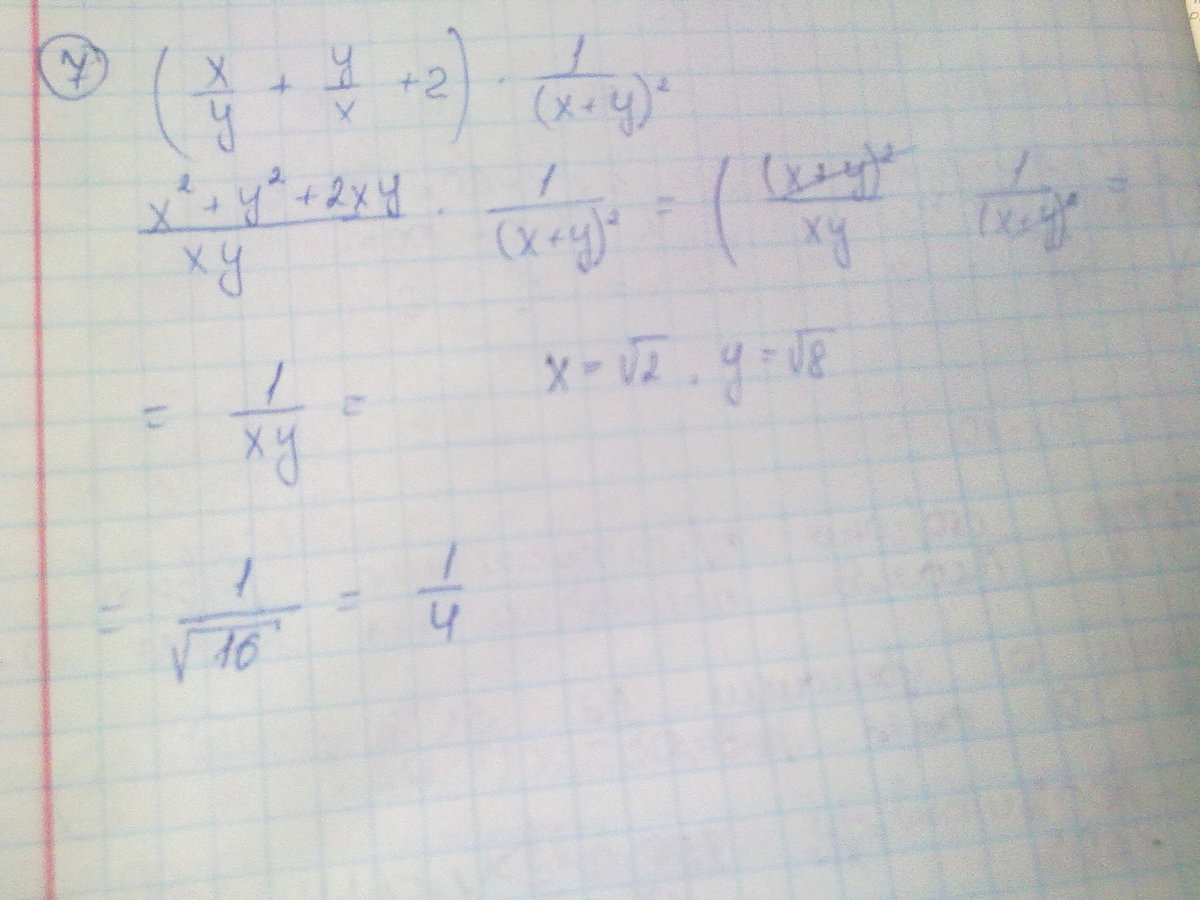 7 (x/y + y/x + 2) · 1/(x+y)²
(x² + y² + 2xy)/(xy) · 1/(x+y)² = ( (x+y)²/(xy) · 1/(x+y)² =
= 1/(xy) = x = √2 . y = √8
= 1/√16 = 1/4